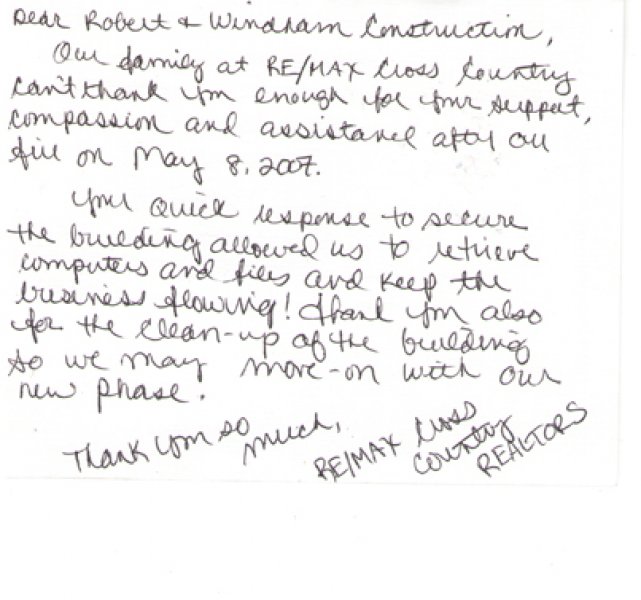 Dear Robert & Windham Construction,
Our family at RE/MAX Cross Country
can't thank you enough for your support,
compassion and assistance after our
fire on May 8, 2007.
Your quick response to secure
the building allowed us to retrieve
computers and files and keep the
business flowing! Thank you also
for the clean-up of the building
so we may move-on with our
new phase.
Thank you so much,
RE/MAX Cross
Country
REALTORS